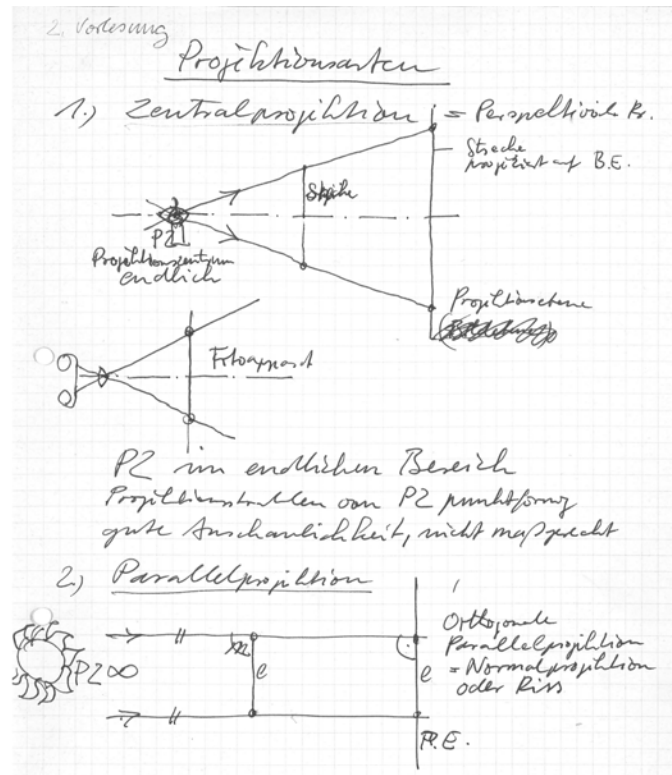 2. Vorlesung
Projektionsarten
1.) Zentralprojektion = Perspektivische Pr.
Strecke
projiziert auf B.E.
PZ
Projektionszentrum
endlich
Projektionsebene
Fotoapparat
PZ im endlichen Bereich
Projektionsstrahlen von PZ punktförmig
gute Anschaulichkeit, nicht maßgerecht
2.) Parallelprojektion
PZ ∞
e
e
Orthogonale
Parallelprojektion
= Normalprojektion
oder Riss
P.E.